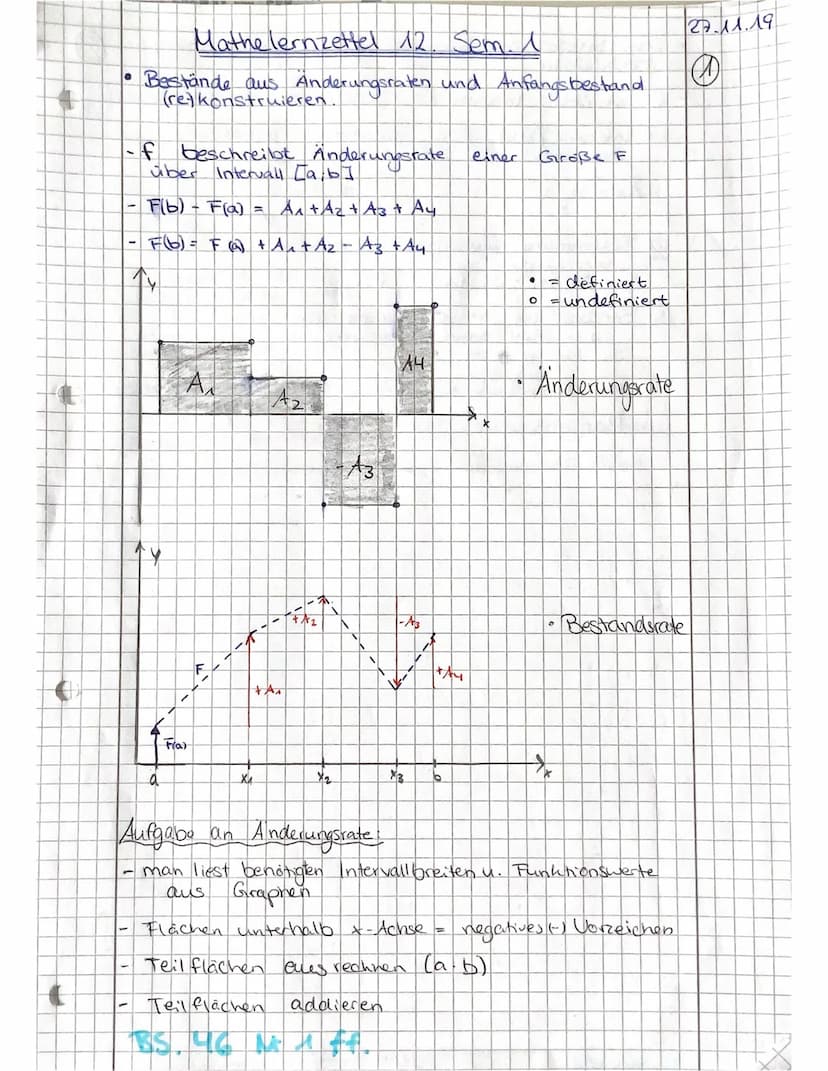 27.11.19
Mathelernzettel 12. Sem. 1
①
• Bestände aus Änderungsraten und Anfangsbestand
(re)konstruieren.
- f beschreibt Änderungsrate einer Größe F
über Intervall [a;b]
- F(b) - F(a) = A1 + A2 + A3 + A4
- F(b) = F(a) + A1 + A2 - A3 + A4
y
• = definiert
o = undefiniert
A1
A2
A4
• Änderungsrate
x
-A3
y
+A2
-A3
• Bestandsrate
F
+A1
+A4
F(a)
a x1 x2 x3 b x
Aufgabe an Änderungsrate:
- man liest benötigten Intervallbreiten u. Funktionswerte
aus Graphen
- Flächen unterhalb x-Achse = negatives (-) Vorzeichen
- Teilflächen ausrechnen (a·b)
- Teilflächen addieren
BS. 46 Nr 1 ff.